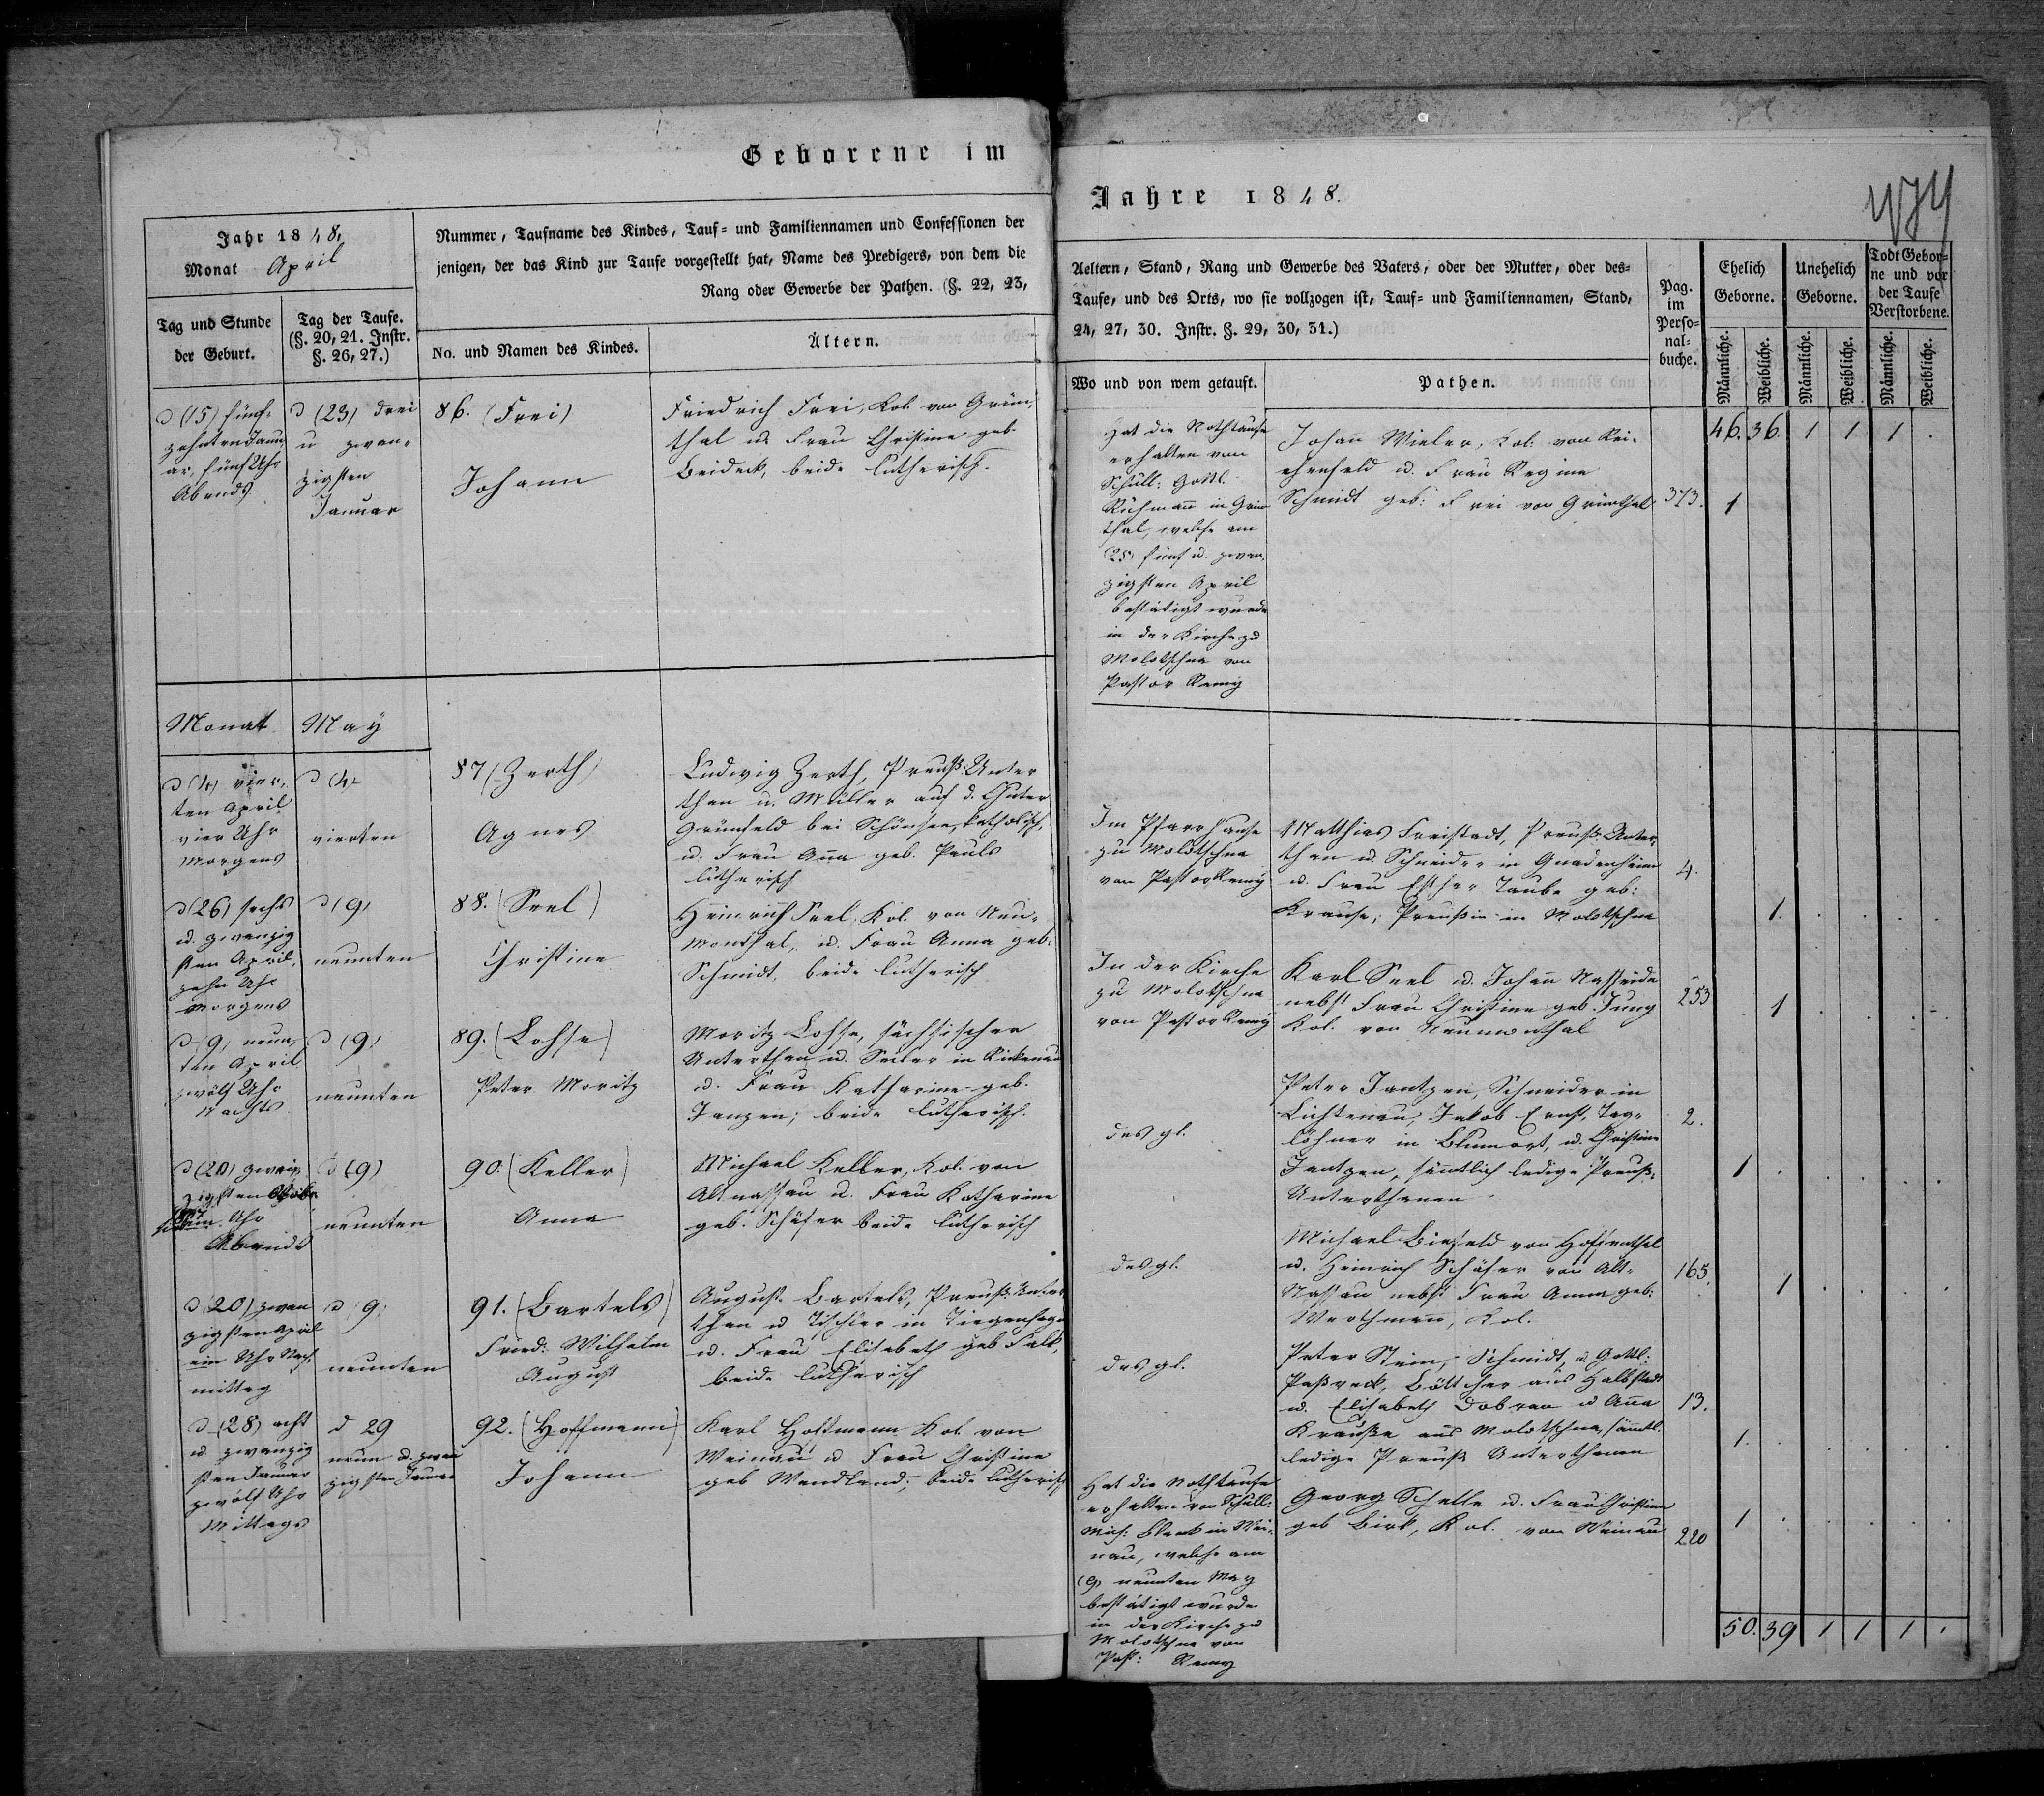 Geborene im
Jahr 1848.
Monat April
Nummer, Taufname des Kindes, Tauf= und Familiennamen und Confessionen der
jenigen, der das Kind zur Taufe vorgestellt hat, Name des Predigers, von dem die
Rang oder Gewerbe der Pathen. (§. 22, 23,
Tag und Stunde
der Geburt.
Tag der Taufe.
(§. 20, 21. Instr.
§. 26, 27.)
No. und Namen des Kindes.
Ältern.
d (15) fünf-
zehnten Janu
ar, fünf Uhr
Abends
d (23) drei
u zwan-
zigsten
Januar
86. (Frei)
Johann
Friedrich Frei, Kol. von Grün,
thal u. Frau Christine geb.
Beideck, beide lutherisch.
Monat
May
d (4) vier,
ten April
vier Uhr
Morgens
d (4)
vierten
87 (Zerth)
Agnes
Ludwig Zerth, Preuß: Unter
than u. Müller auf d. Chutor
Grünfeld bei Schönsee, katholisch,
u. Frau Anna geb. Pauls
lutherisch
d (26) sechs
u. zwanzig
sten April,
zehn Uhr
Morgens
d (9)
neunten
88. (Seel)
Christine
Heinrich Seel, Kol. von Neu-
Monthal, u. Frau Anna geb.
Schmidt, beide lutherisch
d (9) neun,
ten April
zwölf Uhr
Nachts
d (9)
neunten
89. (Lohse)
Peter Moritz
Moritz Lohse, sächsischer
Unterthan u. Seiler in Rückenau
u. Frau Katharine geb.
Janzen; beide lutherisch.
d (20) zwan
zigsten
Uhr
Abends
d (9)
neunten
90. (Keller)
Anna
Michael Keller, Kol. von
Altnassau u. Frau Katharine
geb. Schäfer beide lutherisch
d (20) zwan
zigsten April
ein Uhr Nach
mittag
d (9)
neunten
91. (Bartels)
Fried: Wilhelm
August
August Bartels, Preuß: Unter
than u Tischler in Tiegenhage
u. Frau Elisabeth geb Falk,
beide lutherisch
d (28) acht
u zwanzig
sten Januar
zwölf Uhr
Mittags
d 29
neun u. zwan
zigsten Januar
92. (Hoffmann)
Johann
Karl Hoffmann Kol. von
Weinau u Frau Christine
geb Wendland; beide lutherisch
Jahre 1848.
Aeltern, Stand, Rang und Gewerbe des Vaters, oder der Mutter, oder des=
Taufe, und des Orts, wo sie vollzogen ist, Tauf= und Familiennamen, Stand,
24, 27, 30. Instr. §. 29, 30, 31.)
Pag.
im
Perso=
nal=
buche.
Ehelich
Geborne.
Unehelich
Geborne.
Todt Gebor=
ne und vor
der Taufe
Verstorbene.
Männliche.
Weibliche.
Männliche.
Weibliche.
Männliche.
Weibliche.
Wo und von wem getauft.
Pathen.
46. 36. 1 1 1 .
Hat die Nothtaufe
erhalten von
Schull: Gottl.
in Grün
thal, welche am
(25) fünf u. zwan,
zigsten April
bestätigt wurde
in der Kirche zu
Molotschna von
Pastor Remy
Johann Wieler, Kol. von Rei-
chenfeld u. Frau Regine
Schmidt geb: Frei von Grünthal
373.
1
Im Pfarrhause
zu Molotschna
von Pastor Remy
Matthias Freistadt, Preuß: Unter,
than u. Schneider in Gnadenheim
u. Frau Esther Taube geb:
Krause; Preußin in Molotschna
4.
1. . . . .
In der Kirche
zu Molotschna
von Pastor Remy
Karl Seel u. Johann
nebst Frau Christine geb Jung
Kol. von Neumonthal
253
1 . . . .
desgl.
Peter Jantzen, Schneider in
Lichtenau, Jakob Ernst, Tag-
löhner in Blumort, u. Christine
Jantzen, sämtlich ledige Preuß:
Unterthanen
2.
1 . . . . .
desgl.
Michael von Hoffenthal
u. Heinrich Schäfer von Alt-
Nassau nebst Frau Anna geb:
Werthmann, Kol.
165.
1 . . . .
desgl.
Peter Stein, Schmidt, u. Gottl:
Böttcher aus Halbstadt
u. Elisabeth Dobran u Anna
Krauße aus Molotschna, sämtl.
ledige Preuß Unterthanen
13.
1. . . . . .
Hat die Nothtaufe
erhalten von Schull:
Mich: Blank in Wei-
nau, welche am
(9) neunten May
bestätigt wurde
in der Kirche zu
Molotschna von
Past: Remy
Georg Schelle u. Frau Christine
geb Birk, Kol. von Weinau
220
1 . . . . .
50. 39 1 1 1 .